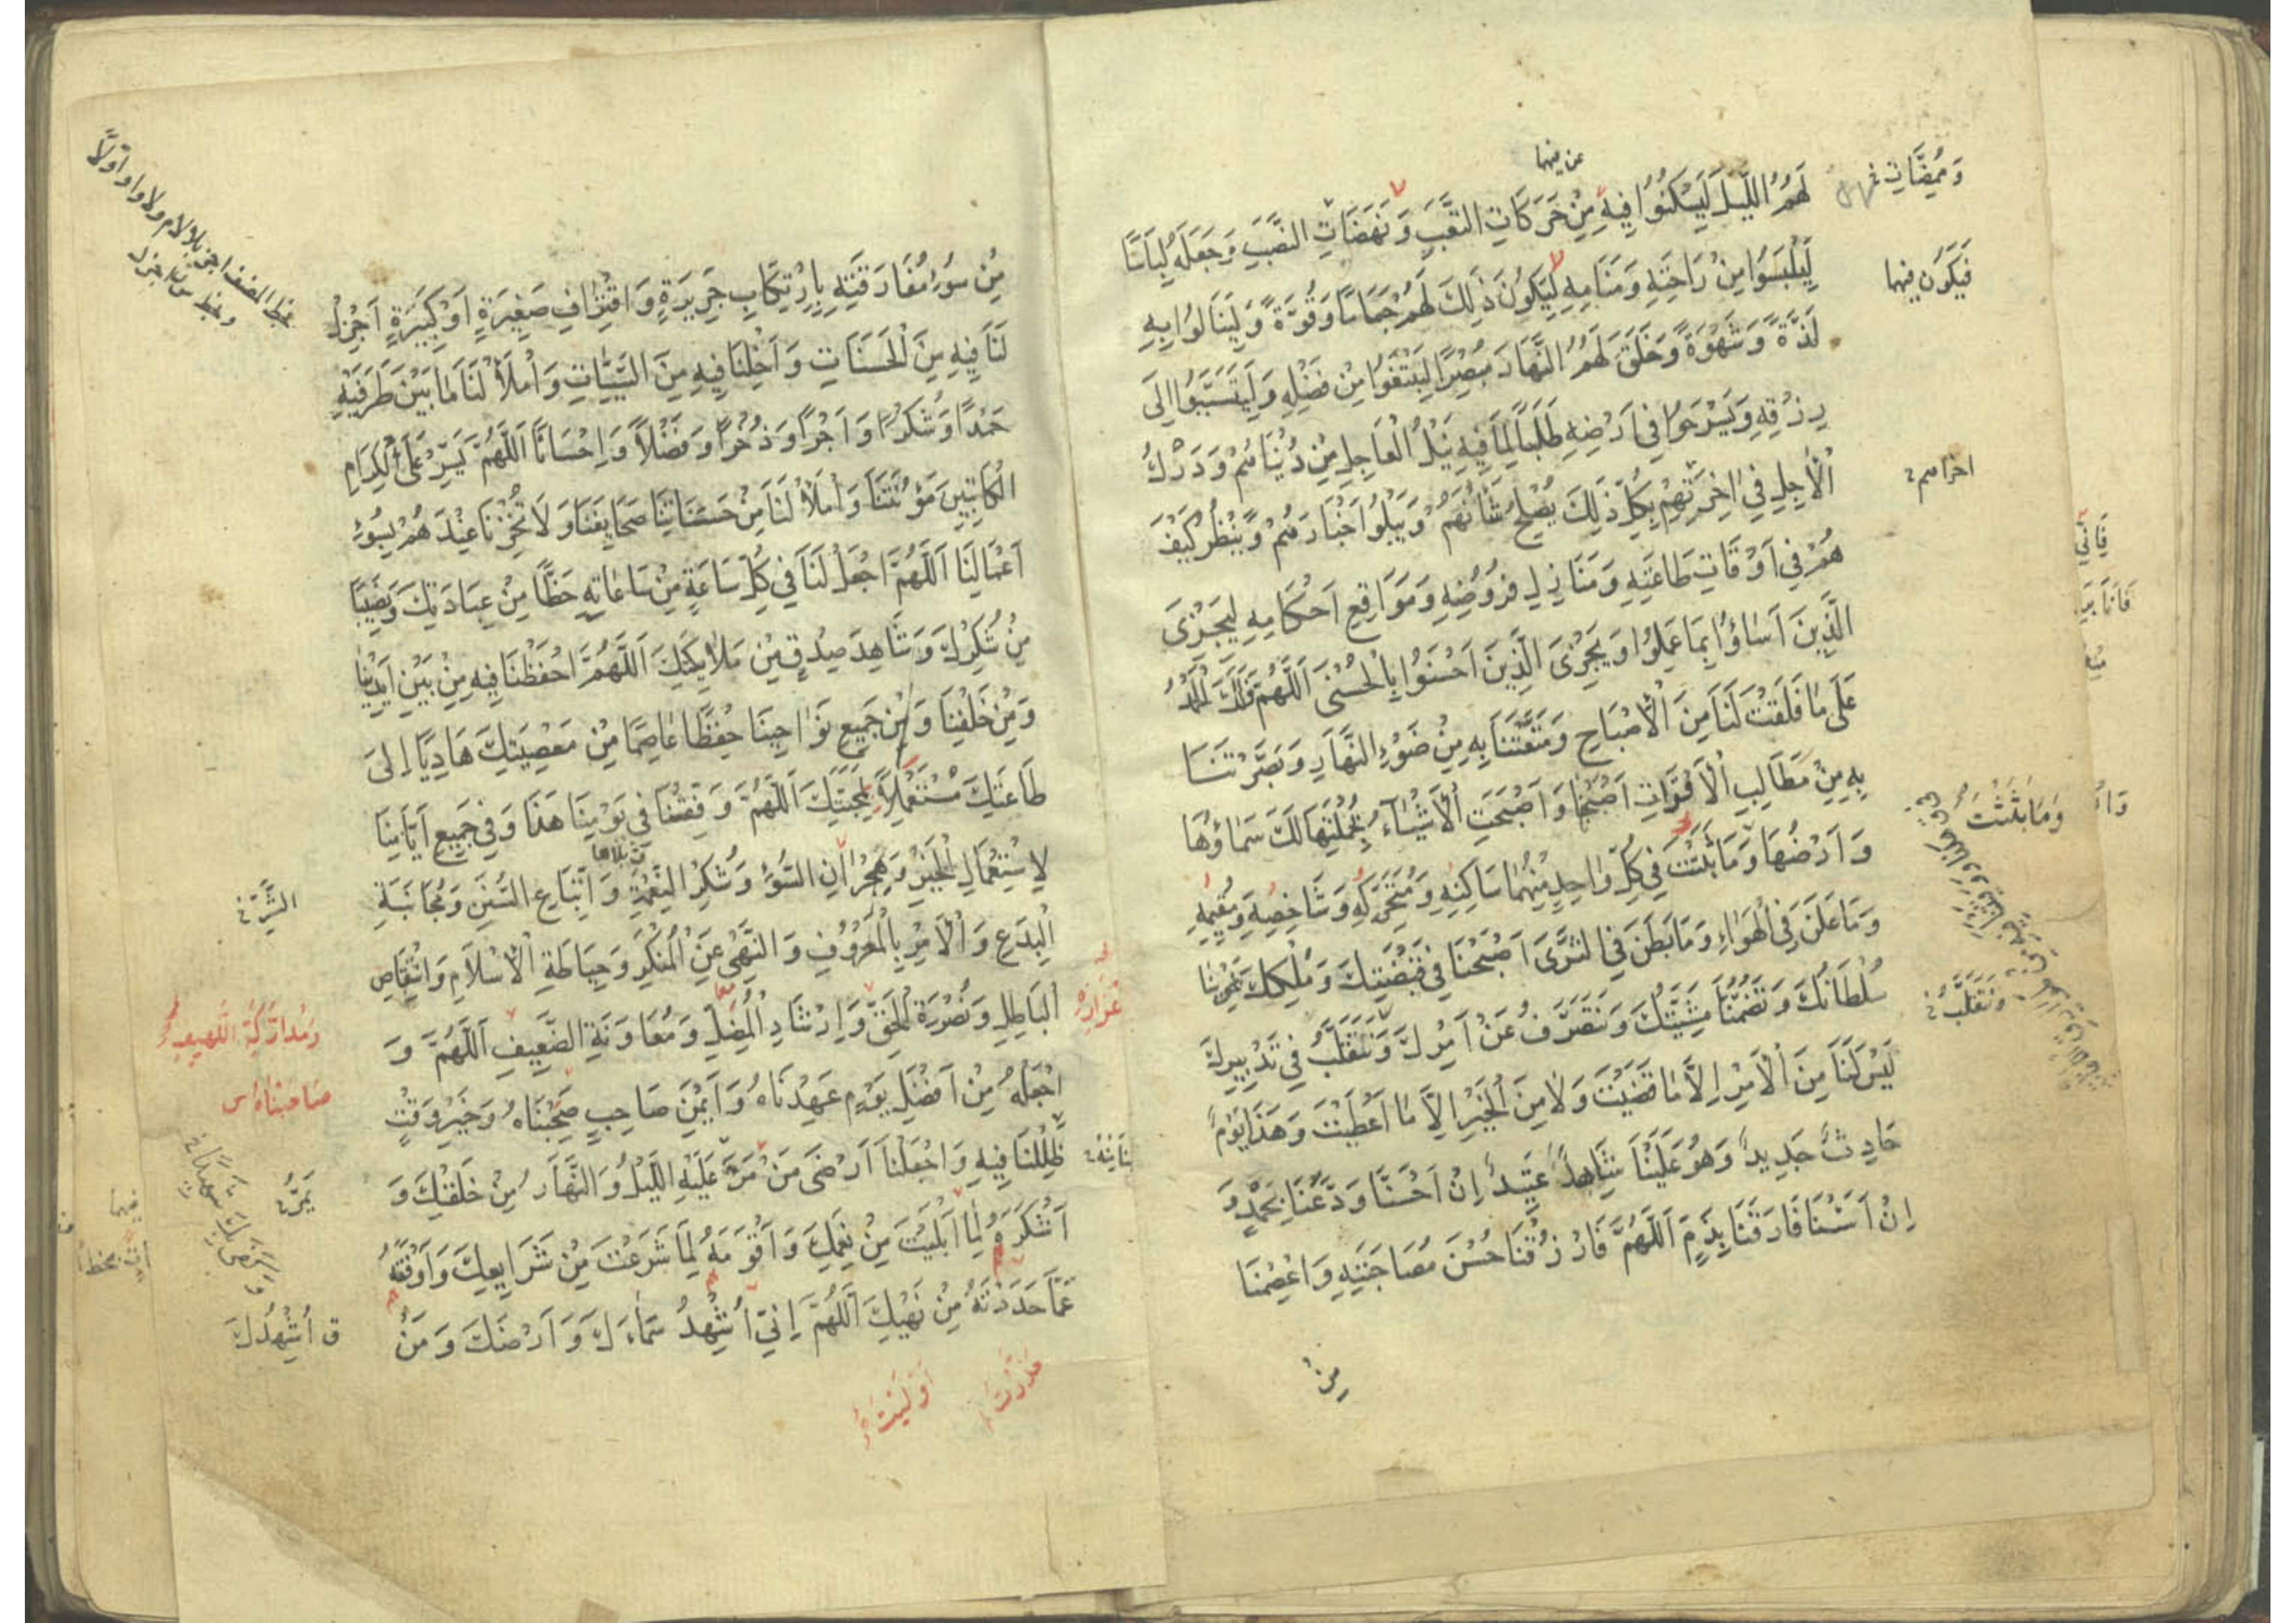 لَهُمُ اللَّيْلَ لِيَسْكُنُوا فِيهِ مِنْ حَرَكَاتِ التَّعَبِ وَنَهَضَاتِ النَّصَبِ وَجَعَلَهُ لِبَاسًا
لِيَلْبَسُوا مِنْ رَاحَتِهِ وَمَنَامِهِ لِيَكُونَ ذَلِكَ لَهُمْ جَمَامًا وَقُوَّةً وَلِيَنَالُوا بِهِ
لَذَّةً وَشَهْوَةً وَخَلَقَ لَهُمُ النَّهَارَ مُبْصِرًا لِيَبْتَغُوا مِنْ فَضْلِهِ وَلِيَتَسَبَّبُوا إِلَى
رِزْقِهِ وَيَسْرَحُوا فِي أَرْضِهِ طَلَبًا لِمَا فِيهِ نَيْلُ الْعَاجِلِ مِنْ دُنْيَاهُمْ وَدَرْكُ
الْآجِلِ فِي اخِرَتِهِمْ بِكُلِّ ذَلِكَ يُصْلِحُ شَأْنَهُمْ وَيَبْلُوا أَخْبَارَهُمْ وَيَنْظُرُ كَيْفَ
هُمْ فِي أَوْقَاتِ طَاعَتِهِ وَمَنَازِلِ فُرُوضِهِ وَمَوَاقِعِ أَحْكَامِهِ لِيَجْزِىَ
الَّذِينَ أَسَاؤُا بِمَا عَمِلُوا وَيَجْزِىَ الَّذِينَ أَحْسَنُوا بِالْحُسْنَى اَللَّهُمَّ فَلَكَ الْحَمْدُ
عَلَى مَا فَلَقْتَ لَنَا مِنَ الْأِصْبَاحِ وَمَتَّعْتَنَا بِهِ مِنْ ضَوْءِ النَّهَارِ وَبَصَّرْتَنَا
بِهِ مِنْ مَطَالِبِ الْأَقْوَاتِ أَصْبَحْنَا وَأَصْبَحَتِ الْأَشْيَاءُ بِجُمْلَتِهَا لَكَ سَمَاؤُهَا
وَأَرْضُهَا وَمَا بَثَثْتَ فِي كُلِّ وَاحِدٍ مِنْهُمَا سَاكِنِهِ وَمُتَحَرِّكِهِ وَشَاخِصِهِ وَمُقِيمِهِ
وَمَا عَلَنَ فِي الْهَوَاءِ وَمَا بَطَنَ فِي الثَّرَى أَصْبَحْنَا فِي قَبْضَتِكَ وَمُلْكِكَ يَحْوِينَا
سُلْطَانُكَ وَتَضُمُّنَا مَشِيَّتُكَ وَنَتَصَرَّفُ عَنْ أَمْرِكَ وَنَتَقَلَّبُ فِي تَدْبِيرِكَ
لَيْسَ لَنَا مِنَ الْأَمْرِ إِلَّا مَا قَضَيْتَ وَلَا مِنَ الْخَيْرِ إِلَّا مَا أَعْطَيْتَ وَهَذَا يَوْمٌ
حَادِثٌ جَدِيدٌ وَهُوَ عَلَيْنَا شَاهِدٌ عَتِيدٌ إِنْ أَحْسَنَّا وَدَّعَنَا بِحَمْدٍ وَ
إِنْ أَسَأْنَا فَارَقَنَا بِذَمٍّ اَللَّهُمَّ فَارْزُقْنَا حُسْنَ مُصَاحَبَتِهِ وَاعْصِمْنَا
مِنْ
فَيَكُونَ فِيهَا
وَمَا بَثَثْتَ
وَنَتَقَلَّبُ
مِنْ سُوءِ مُفَارَقَتِهِ بِارْتِكَابِ جَرِيرَةٍ وَاقْتِرَافِ صَغِيرَةٍ أَوْ كَبِيرَةٍ أَجْزِلْ
لَنَا فِيهِ مِنَ الْحَسَنَاتِ وَأَخْلِنَا فِيهِ مِنَ السَّيِّئَاتِ وَأَمْلَأْ لَنَا مَا بَيْنَ طَرَفَيْهِ
حَمْدًا وَشُكْرًا وَأَجْرًا وَذُخْرًا وَفَضْلًا وَإِحْسَانًا اَللَّهُمَّ يَسِّرْ عَلَى الْكِرَامِ
الْكَاتِبِينَ مَؤُنَتَنَا وَأَمْلَأْ لَنَا مِنْ حَسَنَاتِنَا صَحَايِفَنَا وَلَا تُخْزِنَا عِنْدَهُمْ بِسُوءِ
أَعْمَالِنَا اَللَّهُمَّ اجْعَلْ لَنَا فِي كُلِّ سَاعَةٍ مِنْ سَاعَاتِهِ حَظًّا مِنْ عِبَادَتِكَ وَنَصِيبًا
مِنْ شُكْرِكَ وَشَاهِدَ صِدْقٍ مِنْ مَلَائِكَتِكَ اَللَّهُمَّ احْفَظْنَا فِيهِ مِنْ بَيْنِ أَيْدِينَا
وَمِنْ خَلْفِنَا وَمِنْ جَمِيعِ نَوَاحِينَا حِفْظًا عَاصِمًا مِنْ مَعْصِيَتِكَ هَادِيًا إِلَى
طَاعَتِكَ مُسْتَعْمِلًا لِمَحَبَّتِكَ اَللَّهُمَّ وَفِّقْنَا فِي يَوْمِنَا هَذَا وَفِي جَمِيعِ أَيَّامِنَا
لِاسْتِعْمَالِ الْخَيْرِ وَهِجْرَانِ السُّوءِ وَشُكْرِ النِّعْمَةِ وَاتِّبَاعِ السُّنَنِ وَمُجَانَبَةِ
الْبِدَعِ وَالْأَمْرِ بِالْمَعْرُوفِ وَالنَّهْيِ عَنِ الْمُنْكَرِ وَحِيَاطَةِ الْأِسْلَامِ وَانْتِقَاصِ
الْبَاطِلِ وَنُصْرَةِ الْحَقِّ وَإِرْشَادِ الْمُضِلِّ وَمُعَاوَنَةِ الضَّعِيفِ اَللَّهُمَّ وَ
اجْعَلْهُ مِنْ أَفْضَلِ يَوْمٍ عَهِدْنَاهُ وَأَيْمَنِ صَاحِبٍ صَحِبْنَاهُ وَخَيْرِ وَقْتٍ
ظَلِلْنَا فِيهِ وَاجْعَلْنَا أَرْضَى مَنْ مَرَّ عَلَيْهِ اللَّيْلُ وَالنَّهَارُ مِنْ خَلْقِكَ وَ
أَشْكَرَهُ لِمَا أَبْلَيْتَ مِنْ نِعَمِكَ وَأَقْوَمَهُ لِمَا شَرَعْتَ مِنْ شَرَايِعِكَ وَأَوْقَفَهُ
عَمَّا حَدَدْتَهُ مِنْ نَهْيِكَ اَللَّهُمَّ إِنِّي أُشْهِدُ سَمَاءَكَ وَأَرْضَكَ وَمَنْ
الشَّرِّ
وَمُدَارَكَةِ اللَّهِيفِ
يَمُرُّ
أُشْهِدُكَ